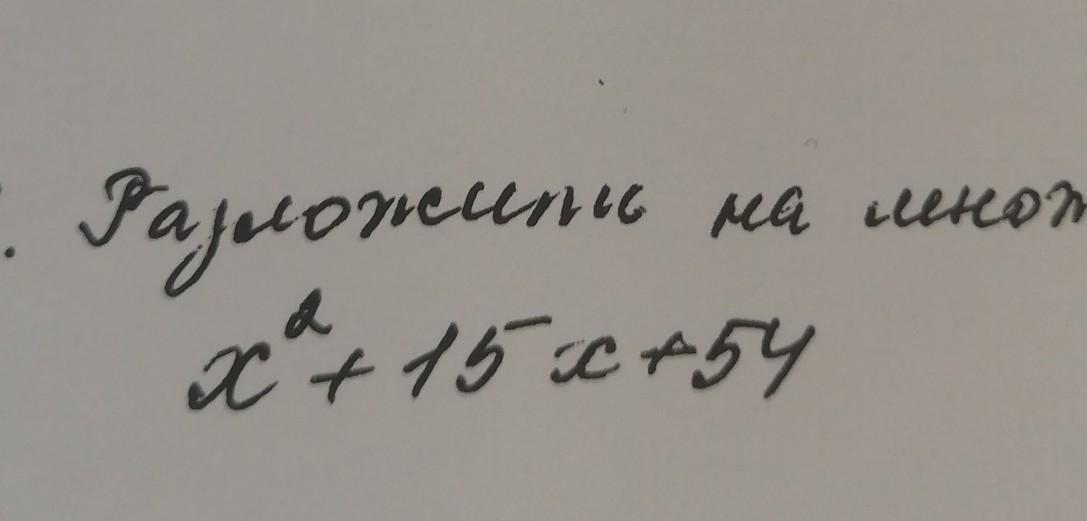 . Разложить на множ
x² + 15x + 54